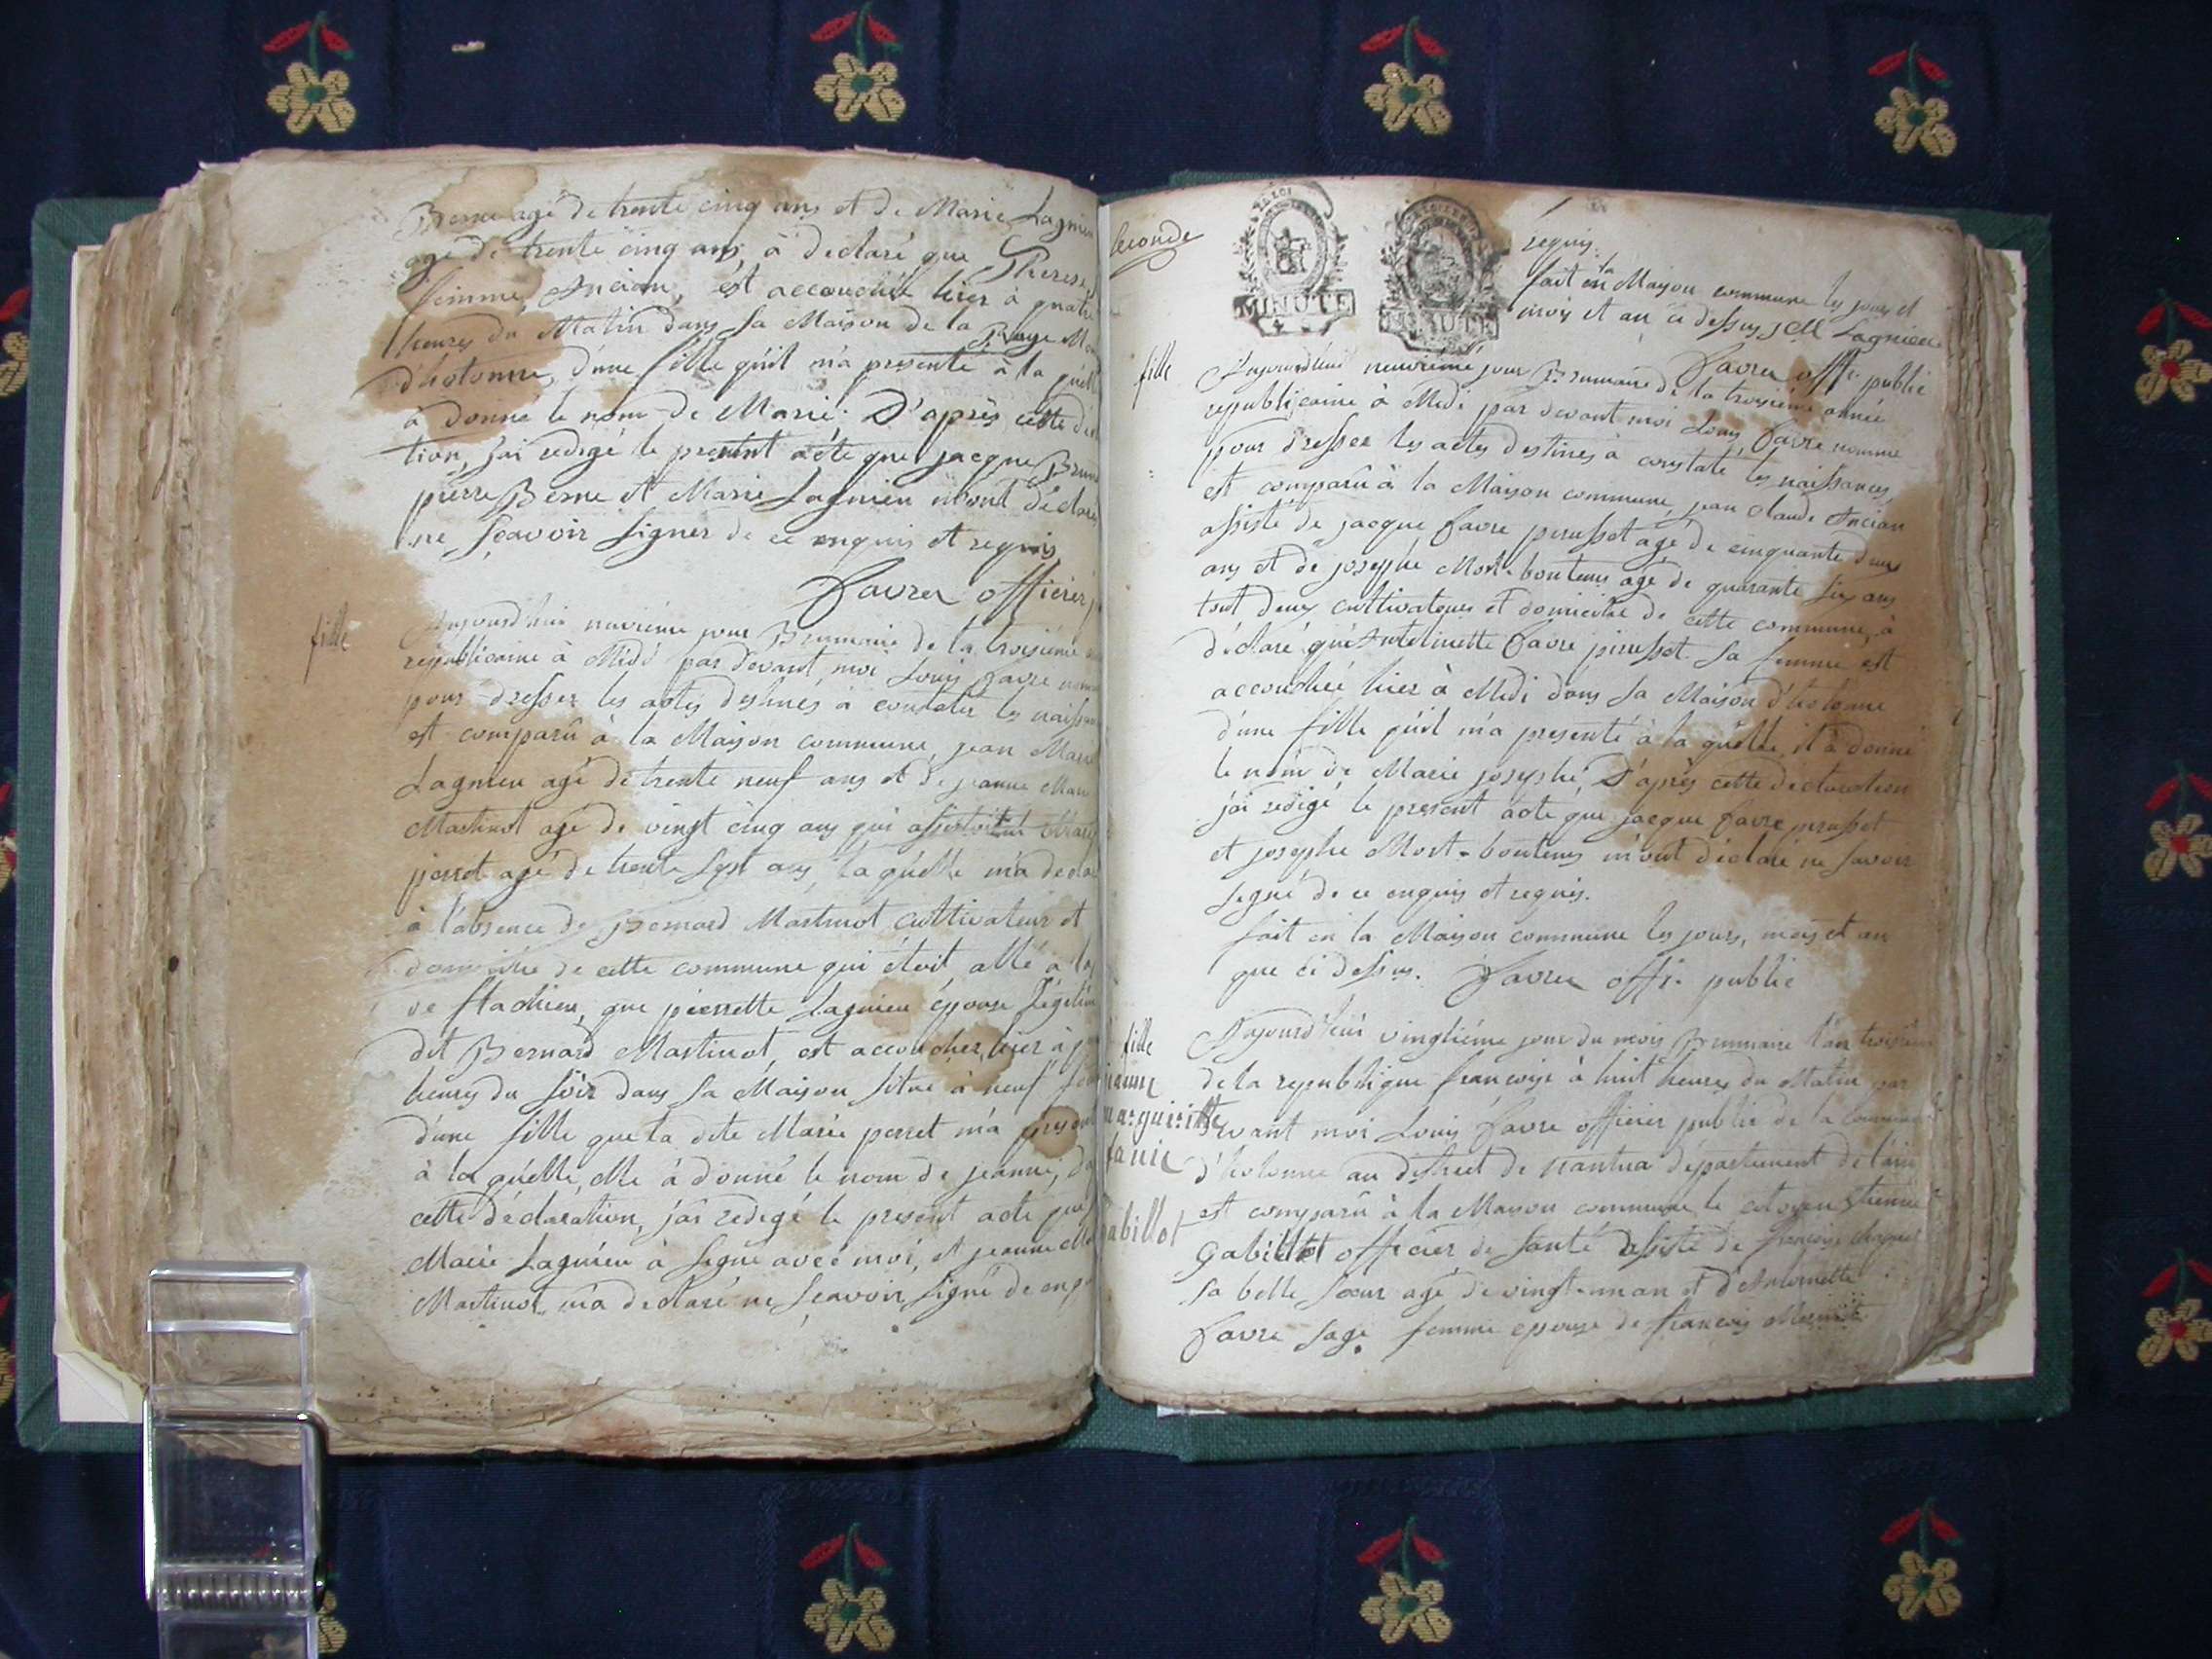 Berne agé de trente cinq ans et de Marie Lagnieu
agé de trente cinq ans, à declaré que Therese
femme Ancian, est accouchée hier à quatre
heures du Matin dans sa Maison de la
d'hotonne, d'une fille qu'il m'a presenté à la quelle
à donné le nom de Marie. D'après cette
tion, j'ai redigé le present acte que jacque
pierre Berne et Marie Lagnieu m'ont déclaré
ne sçavoir signer de ce enquis et requis
Favre officier
fille
Aujourd'hui neuvième jour Brumaire de la troisième
republicaine à Midi par devant moi Louis Favre nommé
pour dresser les actes destines à constater les naissances
est comparû à la Maison commune jean Marie
Lagnieu agé de trente neuf ans et de jeanne Marie
Martinot agé de vingt cinq ans qui Marie
perret agé de trente sept ans, la quelle m'a declaré
à l'absence de Bernard Martinot cultivateur et
domicilié de cette commune qui étoit allé à la
que pierrette Lagnieu épouse
dit Bernard Martinot, est accoucher hier à
heures du soir dans sa Maison situé à neuf
d'une fille que la dite Marie perret m'a presenté
à la quelle, elle à donné le nom de jeanne,
cette déclaration, j'ai redigé le present acte que
Marie Lagnieu à signé avec moi, et jeanne
Martinot m'a declaré ne sçavoir signé de
seconde
MINUTE
MINUTE
requis.
fait en la Maison commune les jours et
mois et an ci dessus JM Lagnieu
Favre offi. public
fille
Aujourd'hui neuvième jour Brumaire de la troisième année
republicaine à Midi par devant moi Louis Favre nommé
pour dresser les actes destinés à constaté les naissances,
est comparû à la Maison commune, jean Claude Ancian
assisté de jacque Favre perusset agé de cinquante deux
ans et de josephe Mort-boutems agé de quarante six ans
tout deux cultivateurs et domicilié de cette commune, à
déclaré qu'Antelmette Favre perusset sa femme est
accouchée hier à Midi dans sa Maison d'hotonne
d'une fille qu'il m'a presenté à la quelle il à donné
le nom de Marie josephe, D'après cette declaration
j'ai redigé le present acte que jacque Favre perusset
et josephe Mort-boutems m'ont déclaré ne savoir
signé de ce enquis et requis.
fait en la Maison commune les jours, mois et an
que ci dessus. Favre offi. public
fille
jeanne
marguerite
fanie
gabillot
Aujourd'hui vingtième jour du mois Brumaire l'an troisième
de la republique françoise à huit heures du Matin par
devant moi Louis Favre officier public de la commune
d'hotonne au district de nantua département de l'ain
est comparû à la Maison commune le citoyen Etienne
Gabillot officier de santé assisté de françoise
sa belle sœur agé de vingt-un an et d'Antoinette
Favre sage femme epouse de françois